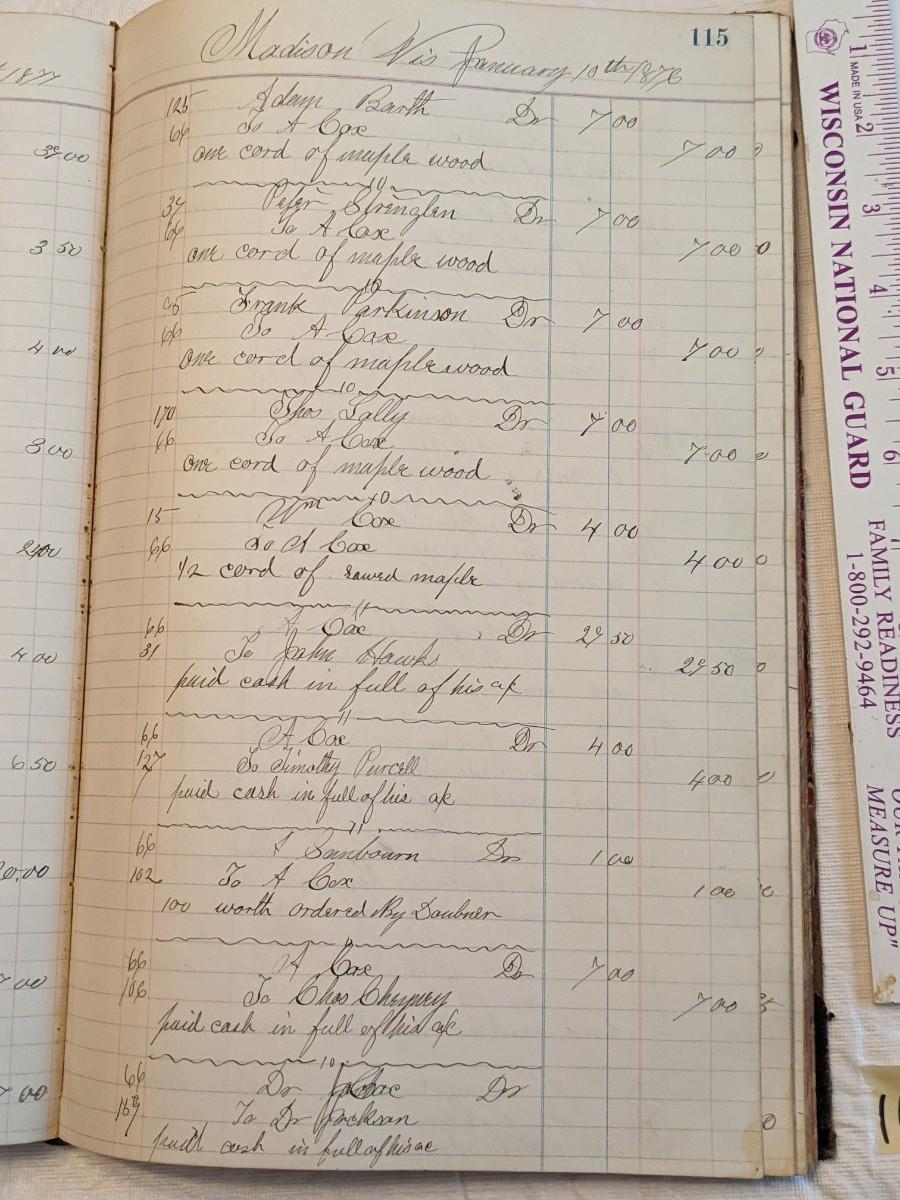 1877
39 00
3 50
4 00
3 00
4 00
6 50
0.00
7 00
7 00
115
Madison Wis January 10th 1876
125 Adam Barth Dr 7 00
66 To A Cox 7 00
one cord of maple wood
10
37 Peter Dr 7 00
66 To A Cox 7 00
one cord of maple wood
10
95 Frank Parkinson Dr 7 00
66 To A Cox 7 00
one cord of maple wood
10
170 Thos Lally Dr 7 00
66 To A Cox 7 00
one cord of maple wood
10
15 Wm Cox Dr 4 00
66 To A Cox 4 00
1/2 cord of sawed maple
11
66 A Cox Dr 29 50
31 To John Hawks 29 50
paid cash in full of his a/c
11
66 A Cox Dr 4 00
127 To Timothy Purcell 4 00
paid cash in full of his a/c
11
66 Sanbourn Dr 1 00
102 To A Cox 1 00
100 worth ordered By Daubner
11
66 A Cox Dr 7 00
106 To Chas Cheyney 7 00
paid cash in full of his a/c
10
66 Dr Cox Dr
To Dr Jackson
paid cash in full of his ac
1 MADE IN USA 2 3 4 5 6
WISCONSIN NATIONAL GUARD
FAMILY READINESS
1-800-292-9464
MEASURE UP"